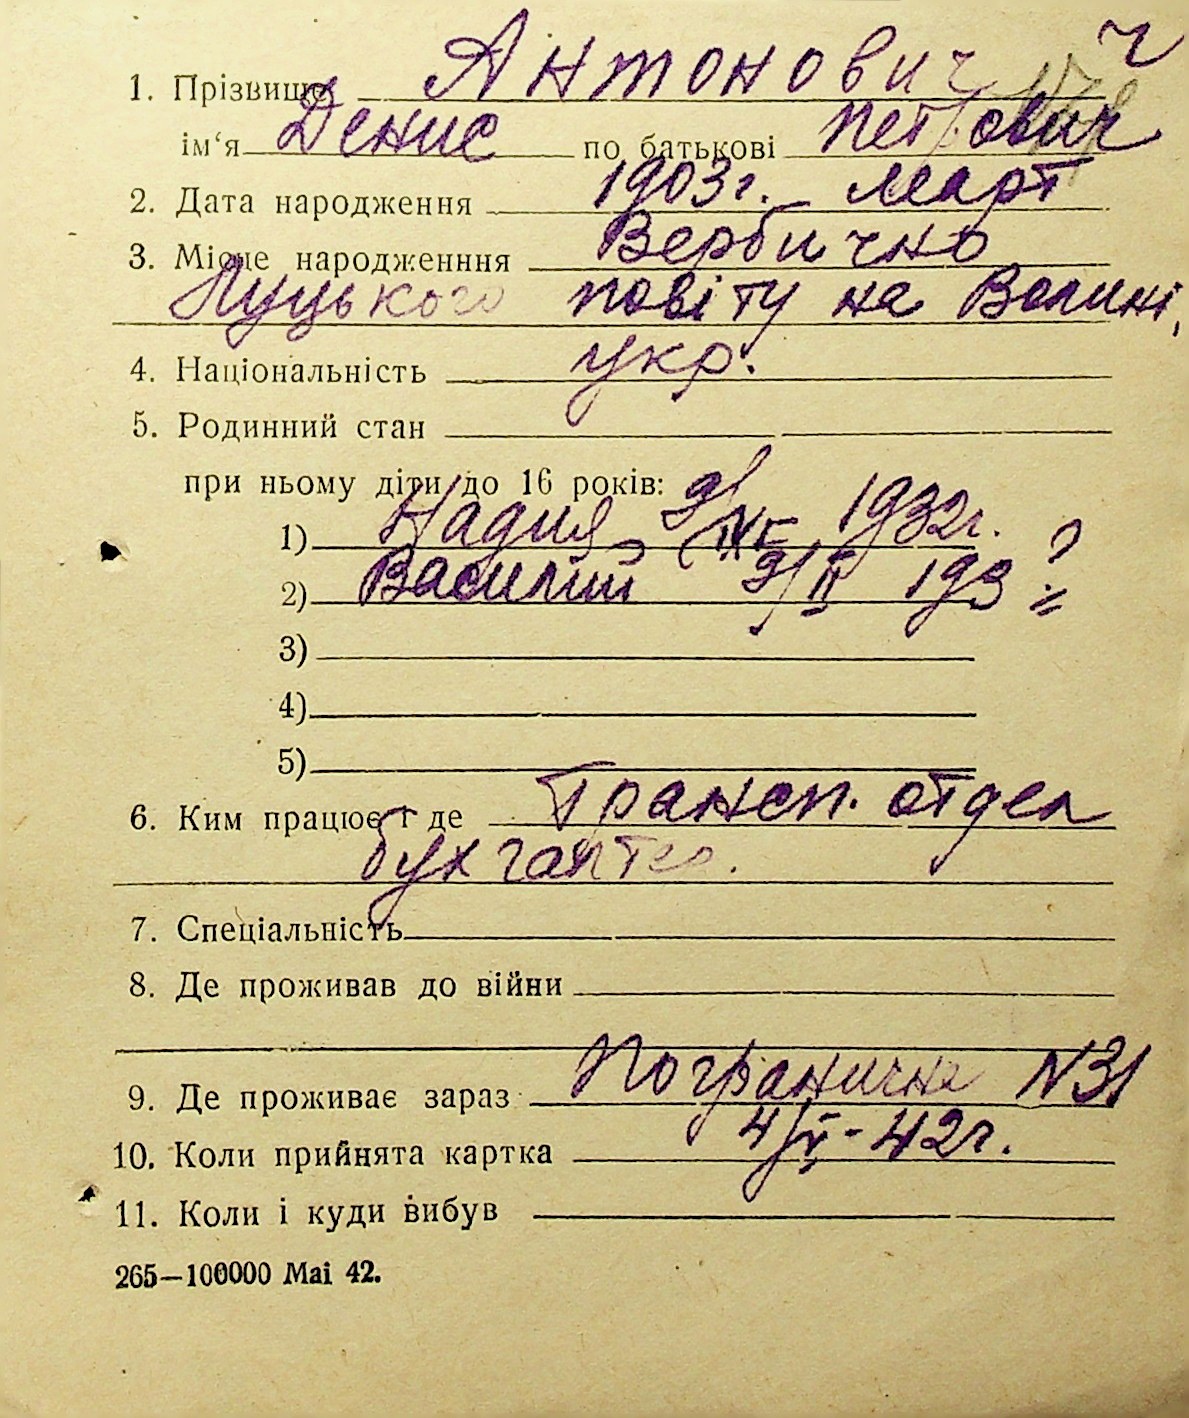 ч
1. Прізвище Антонович
ім‘я Денис по батькові Петрович
2. Дата народження 1903г. Март
3. Місце народженння Вербично
Луцького повіту на Волині,
4. Національність укр.
5. Родинний стан
при ньому діти до 16 років:
1) Надия 9/IX 1932г.
2) Василий 9/II 193 ?
3)
4)
5)
6. Ким працює і де Трансп. отдел
бухгалтер.
7. Спеціальність
8. Де проживав до війни
9. Де проживає зараз Погранична N31
10. Коли прийнята картка 4/V-42г.
11. Коли і куди вибув
265—100000 Mai 42.